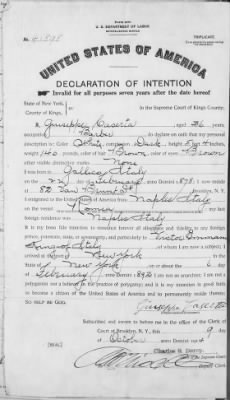 U. S. DEPARTMENT OF LABOR
TRIPLICATE
No.
UNITED STATES OF AMERICA
DECLARATION OF INTENTION
Invalid for all purposes seven years after the date hereof
State of New York,
County of Kings,
In the Supreme Court of Kings County.
I, Giuseppe aged 36 years,
occupation Barber, do declare on oath that my personal
description is: Color White, complexion Dark, height 5 feet 4 inches,
weight 140 pounds, color of hair Brown, color of eyes Brown
other visible distinctive marks None
I was born in Italy
on the day of February, anno Domini 1878; I now reside
at 82 St, Brooklyn, N. Y.
I emigrated to the United States of America from Naples Italy
on the vessel; my last
foreign residence was Naples Italy
It is my bona fide intention to renounce forever all allegiance and fidelity to any foreign
prince, potentate, state, or sovereignty, and particularly to Victor Emmanuel
King of Italy, of whom I am now a subject; I
arrived at the port of New York, in the
State of New York on or about the 6 day
of February, anno Domini 1892; I am not an anarchist; I am not a
polygamist nor a believer in the practice of polygamy; and it is my intention in good faith
to become a citizen of the United States of America and to permanently reside therein:
SO HELP ME GOD.
Giuseppe
Subscribed and sworn to before me in the office of the Clerk of
Court at Brooklyn, N. Y., this 9 day
of October, anno Domini 1914
[SEAL]
Charles S. Devoy,
Clerk of the Supreme Court.
Clerk.